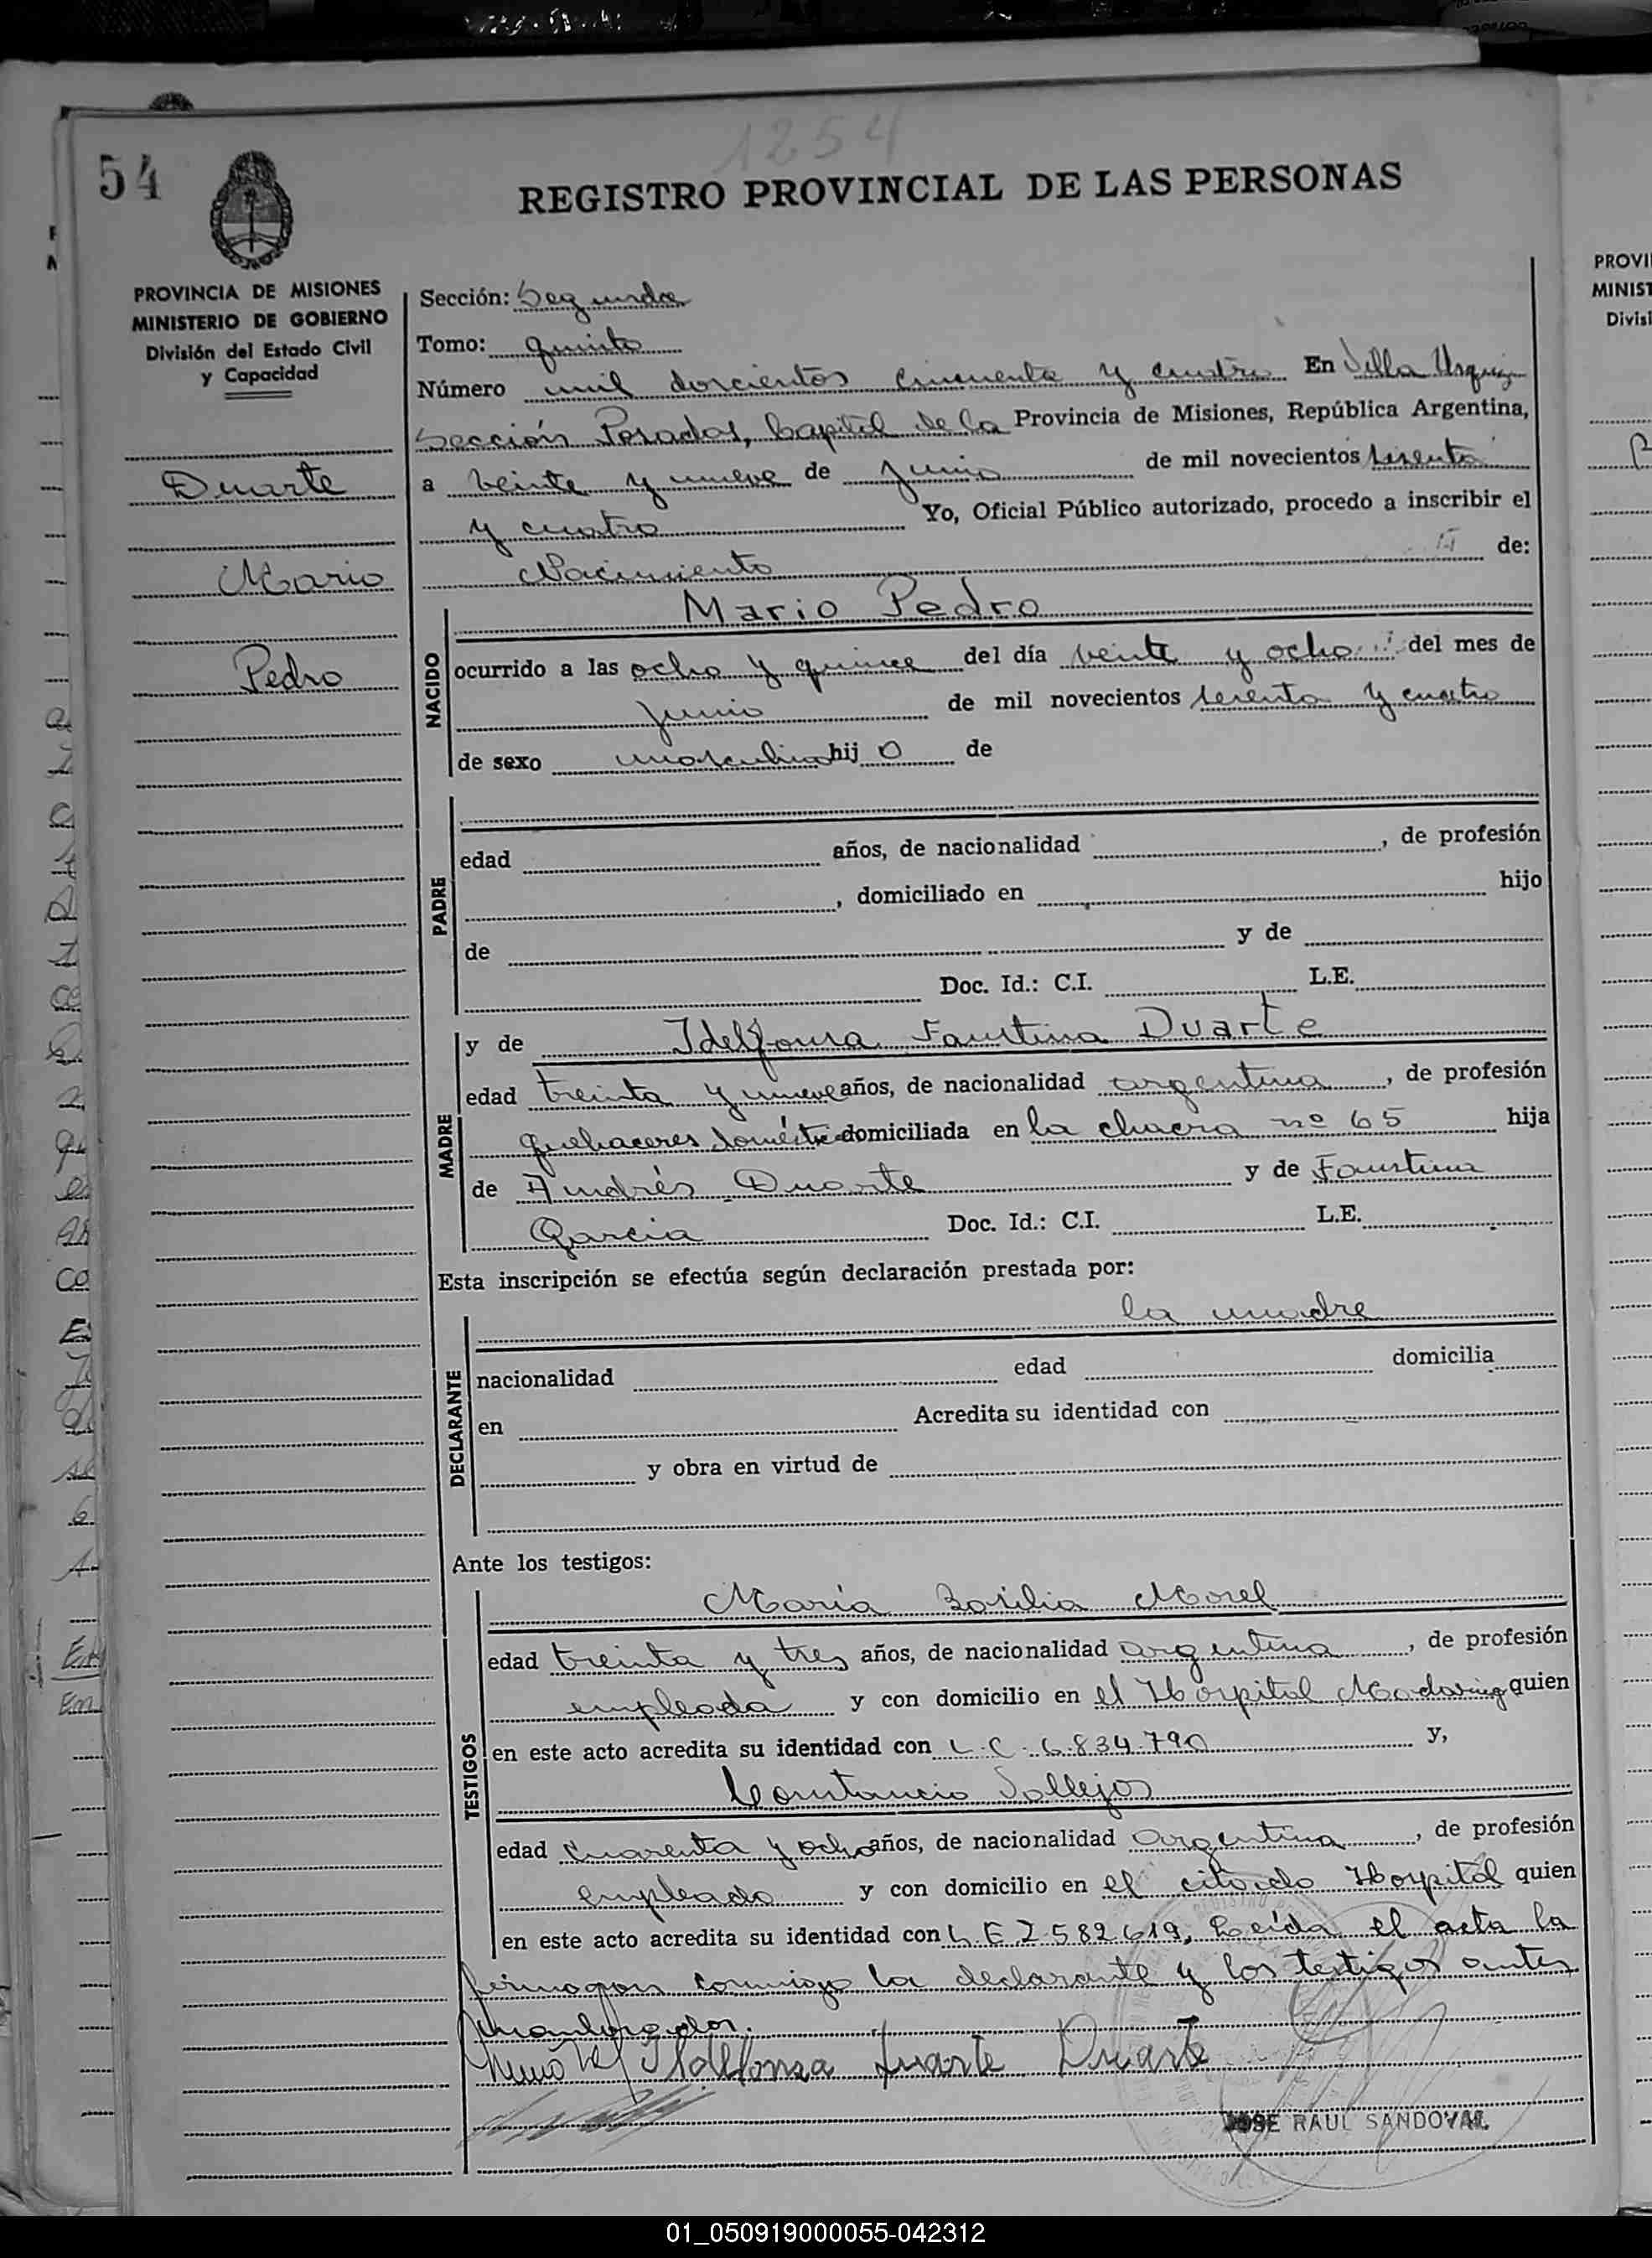 1254
54
REGISTRO PROVINCIAL DE LAS PERSONAS
PROVINCIA DE MISIONES
MINISTERIO DE GOBIERNO
División del Estado Civil
y Capacidad
Duarte
Mario
Pedro
Sección: Segunda
Tomo: quinto
Número mil doscientos cincuenta y cuatro En Villa Urquiza
Sección Posadas, Capital de la Provincia de Misiones, República Argentina,
a veinte y nueve de junio de mil novecientos sesenta
y cuatro Yo, Oficial Público autorizado, procedo a inscribir el
Nacimiento de:
NACIDO
Mario Pedro
ocurrido a las ocho y quince del día veinte y ocho del mes de
junio de mil novecientos sesenta y cuatro
de sexo masculino hijo de
PADRE
edad años, de nacionalidad , de profesión
, domiciliado en hijo
de y de
Doc. Id.: C.I. L.E.
MADRE
y de Idelfonsa Faustina Duarte
edad treinta y nueve años, de nacionalidad argentina, de profesión
quehaceres domiciliada en la chacra nº 65 hija
de Andrés Duarte y de Faustina
Garcia Doc. Id.: C.I. L.E.
Esta inscripción se efectúa según declaración prestada por:
DECLARANTE
la madre
nacionalidad edad domicilia
en Acredita su identidad con
y obra en virtud de
Ante los testigos:
TESTIGOS
María Basilia Morel
edad treinta y tres años, de nacionalidad argentina, de profesión
empleada y con domicilio en el Hospital Madariaga quien
en este acto acredita su identidad con L.C. 6.834.790 y,
Constancio Vallejos
edad cuarenta y ocho años, de nacionalidad argentina, de profesión
empleado y con domicilio en el citado Hospital quien
en este acto acredita su identidad con L.E 2.582.619, Leída el acta la
firmaron conmigo la declarante y los testigos antes
Ildefonsa Duarte Duarte
JOSE RAUL SANDOVAL
PROVI
MINIST
Divisi
01_050919000055-042312